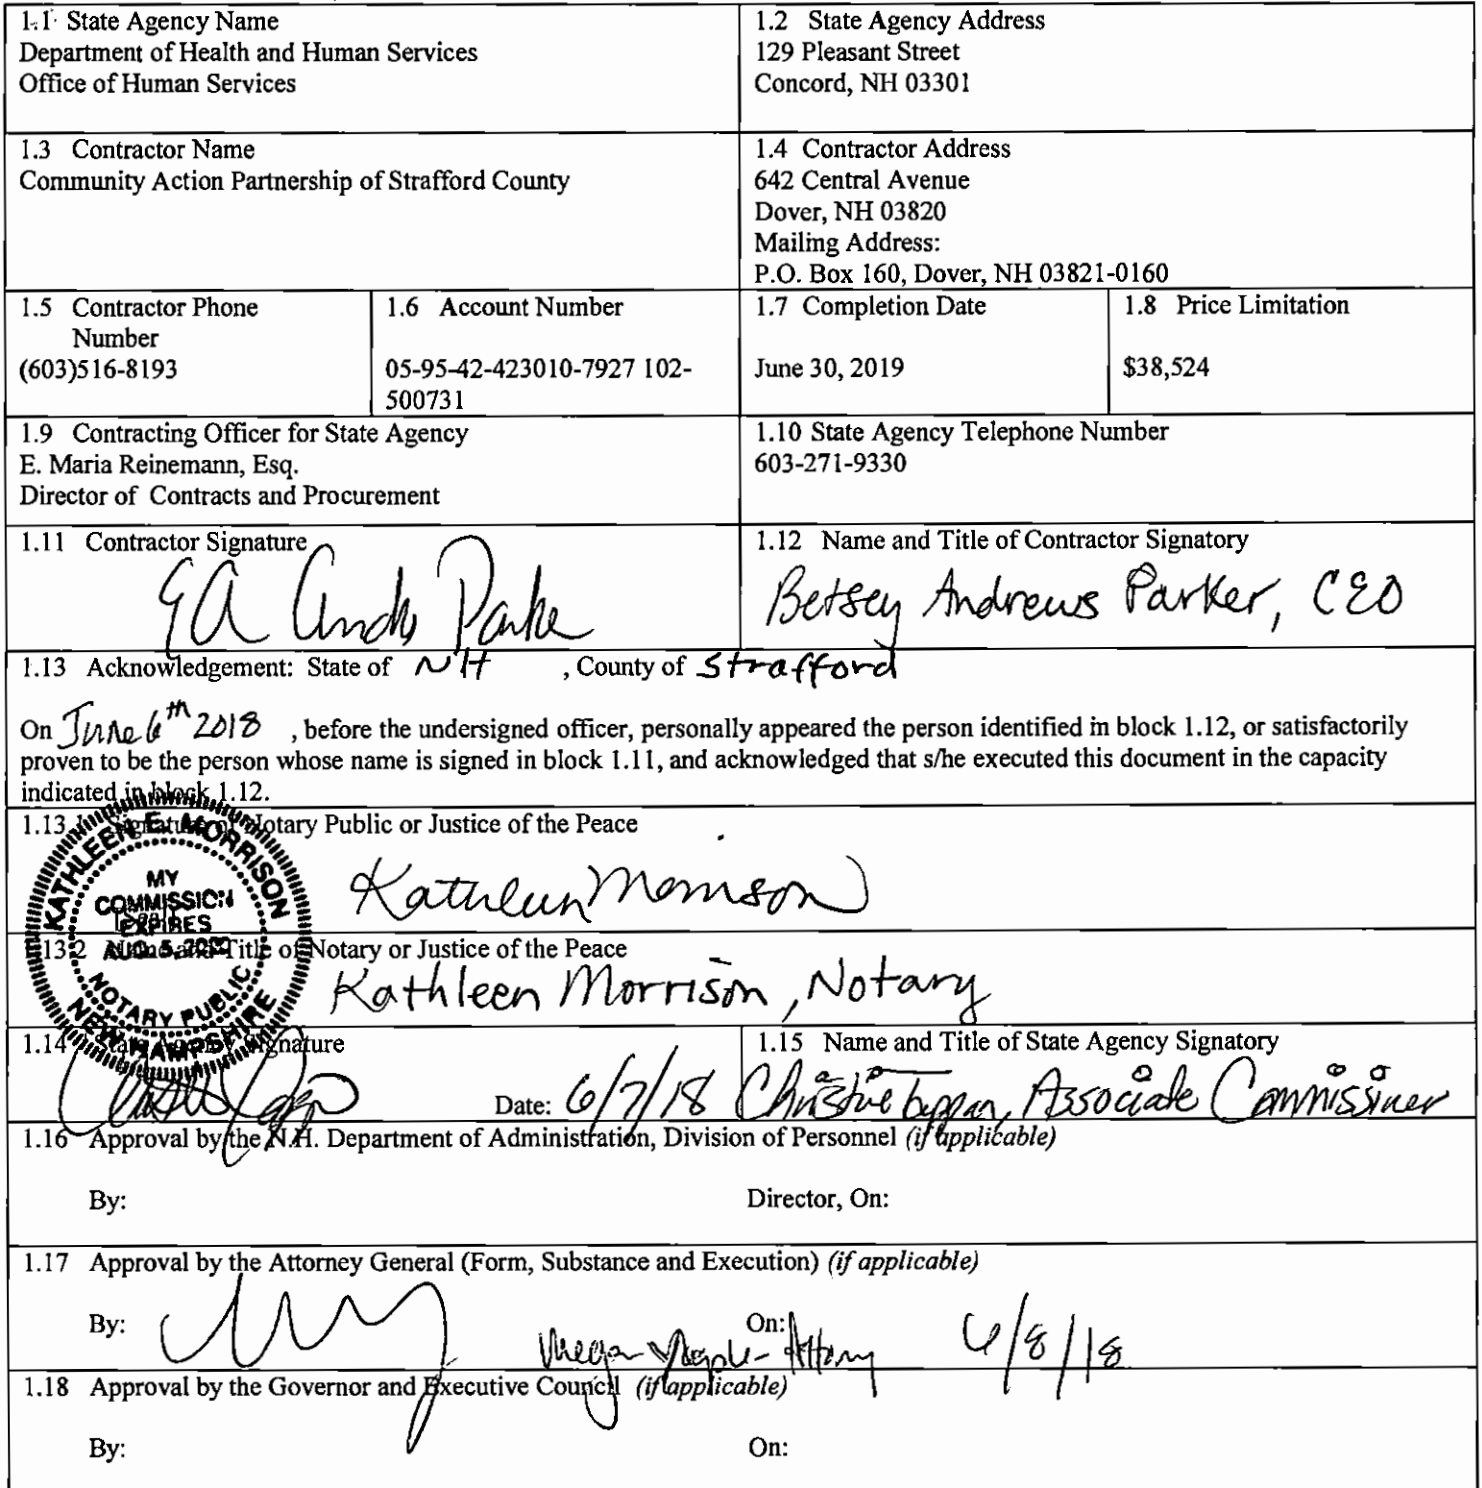 1.1 State Agency Name
Department of Health and Human Services
Office of Human Services
1.2 State Agency Address
129 Pleasant Street
Concord, NH 03301
1.3 Contractor Name
Community Action Partnership of Strafford County
1.4 Contractor Address
642 Central Avenue
Dover, NH 03820
Mailing Address:
P.O. Box 160, Dover, NH 03821-0160
1.5 Contractor Phone
Number
(603)516-8193
1.6 Account Number
05-95-42-423010-7927 102-
500731
1.7 Completion Date
June 30, 2019
1.8 Price Limitation
$38,524
1.9 Contracting Officer for State Agency
E. Maria Reinemann, Esq.
Director of Contracts and Procurement
1.10 State Agency Telephone Number
603-271-9330
1.11 Contractor Signature
EA Parker
1.12 Name and Title of Contractor Signatory
Betsey Andrews Parker, CEO
1.13 Acknowledgement: State of NH , County of Strafford
On June 6th 2018 , before the undersigned officer, personally appeared the person identified in block 1.12, or satisfactorily
proven to be the person whose name is signed in block 1.11, and acknowledged that s/he executed this document in the capacity
indicated in block 1.12.
1.13.1 Signature of Notary Public or Justice of the Peace
KATHLEEN E. MORRISON
MY
COMMISSION
EXPIRES
AUG. 5,
NOTARY PUBLIC
NEW HAMPSHIRE
Kathleen Morrison
1.13.2 Name and Title of Notary or Justice of the Peace
Kathleen Morrison, Notary
1.14 State Agency Signature
Date: 6/7/18
1.15 Name and Title of State Agency Signatory
Christine Tappan, Associate Commissioner
1.16 Approval by the N.H. Department of Administration, Division of Personnel (if applicable)
By:
Director, On:
1.17 Approval by the Attorney General (Form, Substance and Execution) (if applicable)
By:
On: 6/8/18
1.18 Approval by the Governor and Executive Council (if applicable)
By:
On: